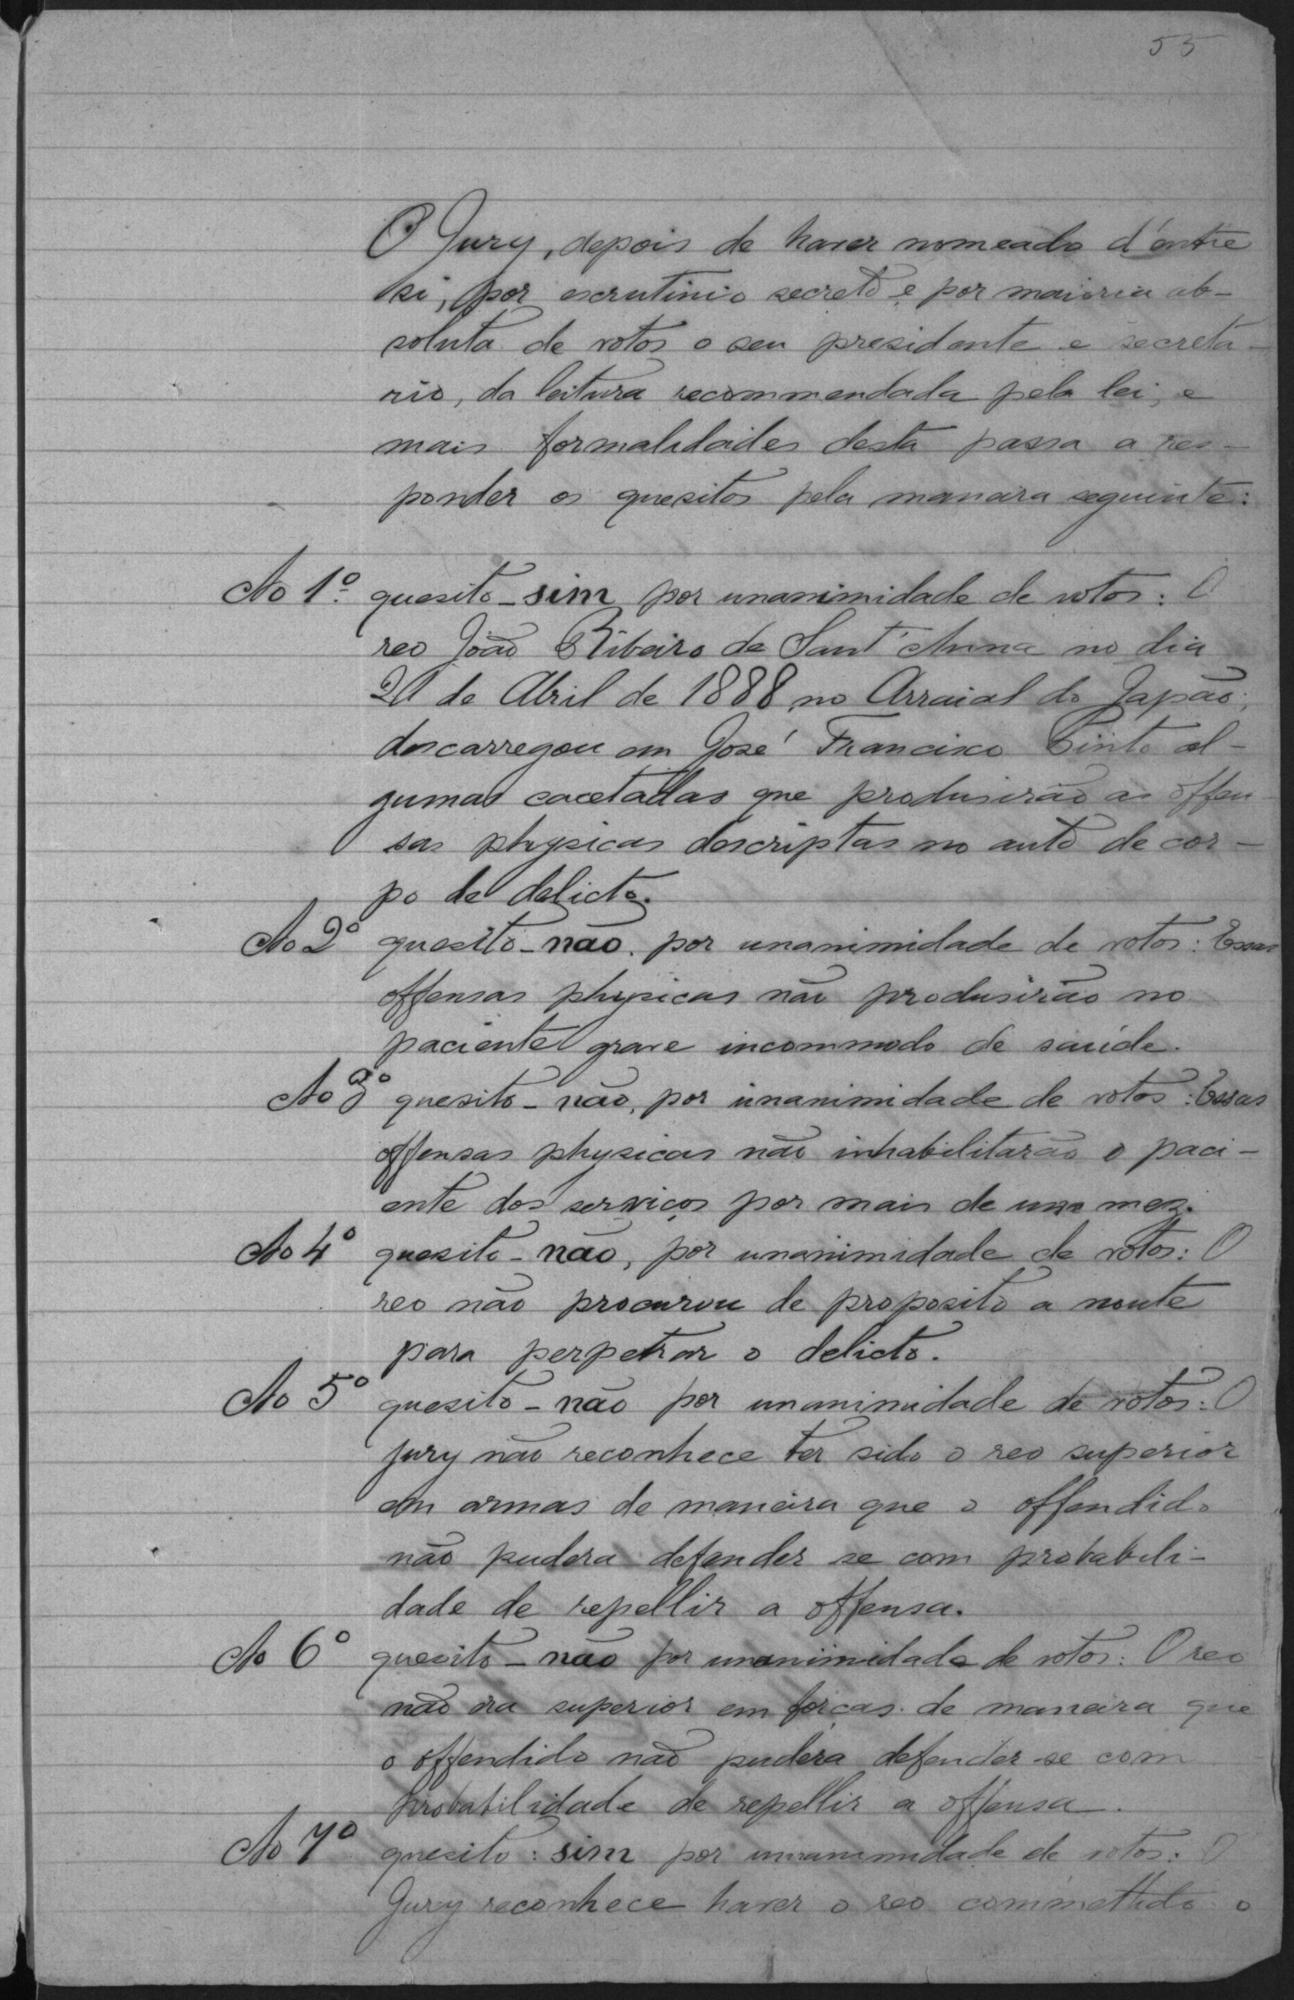 55
O Jury, depois de haver nomeado d'entre
si, por escrutinio secreto e por maioria ab-
soluta de votos o seu presidente e secreta-
rio, da leitura recommendada pela lei, e
mais formalidades desta passa a res-
ponder os quesitos pela maneira seguinte:
Ao 1º quesito - sim por unanimidade de votos: O
reo João Ribeiro de Sant'Anna no dia
20 de Abril de 1888, no Arraial do Japão,
descarregou em José Francisco Pinto al-
gumas cacetadas que produsirão as offen-
sas physicas descriptas no auto de cor-
po de delicto.
Ao 2º quesito - não, por unanimidade de votos: Essas
offensas physicas não produsirão no
paciente grave incommodo de saúde.
Ao 3º quesito - não, por unanimidade de votos: Essas
offensas physicas não inhabilitarão o paci-
ente dos serviços por mais de um mez.
Ao 4º quesito - não, por unanimidade de votos: O
reo não procurou de proposito a noute
para perpetrar o delicto.
Ao 5º quesito - não por unanimidade de votos: O
jury não reconhece ter sido o reo superior
em armas de maneira que o offendido
não pudera defender se com probabili-
dade de repellir a offensa.
Ao 6º quesito - não por unanimidade de votos: O reo
não era superior em forças de maneira que
o offendido não pudera defender-se com
probabilidade de repellir a offensa.
Ao 7º quesito: sim por unanimidade de votos: O
Jury reconhece haver o reo commettido o